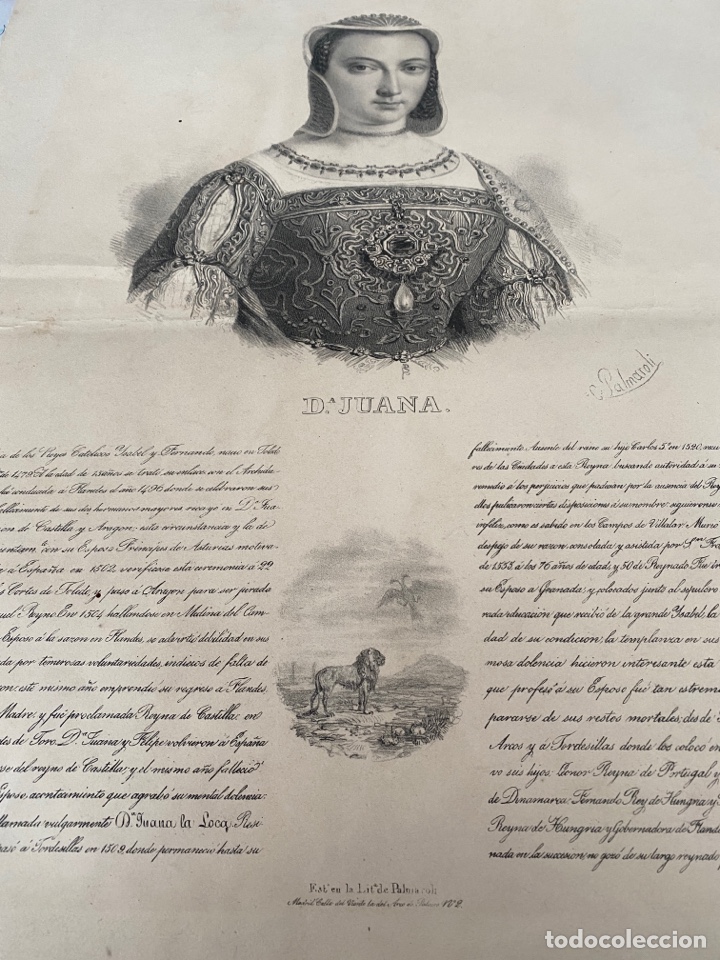 C Palmaroli
D.ª JUANA.
a de los Reyes Catolicos Ysabel y Fernando, nacio en Toledo
de 1479. A la edad de 15 años se trato su enlace con el Archidu-
fué conducida à Flandes el año 1496 donde se celebraron sus
fallecimiento de sus dos hermanos mayores recayo en D.ª Jua-
rona de Castilla y Aragon; esta circunstancia y la de
con su Esposo Principes de Asturias motiva-
e à España en 1502, verificose esta ceremonia à 22
Cortes de Toledo, y paso à Aragon para ser jurada
quel Reyno. En 1504 hallandose en Medina del Cam-
Esposo à la sazon en Flandes, se advirtió debilidad en sus
da por temerosas voluntariedades, indicios de falta de
on: este mismo año emprendio su regreso à Flandes.
Madre; y fué proclamada Reyna de Castilla en
des de Toro. D.ª Juana y Felipe volvieron à España
se del reyno de Castilla; y el mismo año falleció
Esposo, acontecimiento que agrabó su mental dolencia:
llamada vulgarmente D.ª Juana la Loca. Resi-
pasó à Tordesillas en 1509, donde permaneció hasta su
fallecimiento. Ausente del reino su hijo Carlos 5.º en 1520,
res de las Ciudades a esta Reyna, buscando autoridad à su
remedio à los perjuicios que padecian por la ausencia del Rey
ellos publicaron ciertas disposiciones à su nombre: siguieronse
infeliz, como es sabido en los Campos de Villalar. Murió
despejo de su razon, consolada y asistida por S.n Fra
de 1555 à los 76 años de edad, y 50 de Reynado. Fué
su Esposo a Granada; y colocados junto al sepulcro
rada educacion que recibió de la grande Ysabel, la
dad de su condicion, la templanza en sus
mosa dolencia hicieron interesante esta
que profesó à su Esposo fué tan estrem
pararse de sus restos mortales; desde
Arcos y à Tordesillas donde los colocó en
vo seis hijos: Leonor Reyna de Portugal y
de Dinamarca: Fernando Rey de Hungria y
Reyna de Hungria y Gobernadora de Fland
nada en la sucesion; no gozó de su largo reynado
Est.º en la Lit.ª de Palmaroli
Madrid Calle del Viento